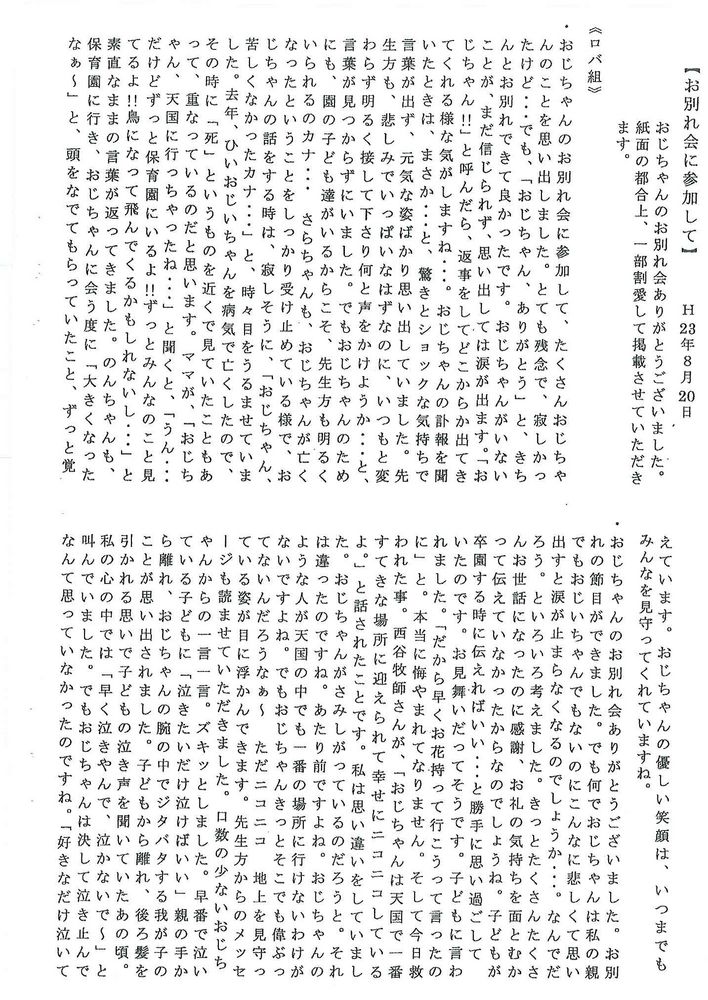 【お別れ会に参加して】　H23年8月20日
おじちゃんのお別れ会ありがとうございました。
紙面の都合上、一部割愛して掲載させていただき
ます。
《ロバ組》
・おじちゃんのお別れ会に参加して、たくさんおじちゃ
んのことを思い出しました。とても残念で、寂しかっ
たけど・・でも、「おじちゃん、ありがとう」と、きち
んとお別れできて良かったです。おじちゃんがいない
ことが、まだ信じられず、思い出しては涙が出ます。「お
じちゃん!!」と呼んだら、返事をしてどこからか出てき
てくれる様な気がしますね・・。おじちゃんの訃報を聞
いたときは、まさか・・と、驚きとショックな気持ちで
言葉が出ず、元気な姿ばかり思い出していました。先
生方も、悲しみでいっぱいなはずなのに、いつもと変
わらず明るく接して下さり何と声をかけようか・・と、
言葉が見つからずにいました。でもおじちゃんのため
にも、園の子ども達がいるからこそ、先生方も明るく
いられるのカナ・・　さらちゃんも、おじちゃんが亡く
なったということをしっかり受け止めている様で、お
じちゃんの話をする時は、寂しそうに、「おじちゃん、
苦しくなかったカナ・・」と、時々目をうるませていま
した。去年、ひいおじいちゃんを病気で亡くしたので、
その時に「死」というものを近くで見ていたこともあ
って、重なっているのだと思います。ママが、「おじち
ゃん、天国に行っちゃったね・・」と聞くと、「うん・・
だけどずっと保育園にいるよ!!ずっとみんなのこと見
てるよ!!鳥になって飛んでくるかもしれないし・・」と
素直なままの言葉が返ってきました。のんちゃんも、
保育園に行き、おじちゃんに会う度に「大きくなった
なぁ～」と、頭をなでてもらっていたこと、ずっと覚
えています。おじちゃんの優しい笑顔は、いつまでも
みんなを見守ってくれていますね。
・おじちゃんのお別れ会ありがとうございました。お別
れの節目ができました。でも何でおじちゃんは私の親
でもおじいちゃんでもないのにこんなに悲しくて思い
出すと涙が止まらなくなるのでしょうか・・。なんでだ
ろう。といろいろ考えました。きっとたくさんたくさ
んお世話になったのに感謝、お礼の気持ちを面とむか
って伝えていなかったからなのでしょうね。子どもが
卒園する時に伝えればいい・・と勝手に思い過ごして
いたのです。お見舞いだってそうです。子どもに言わ
れました。「だから早くお花持って行こうって言ったの
に」と。本当に悔やまれてなりません。そして今日救
われた事。西谷牧師さんが、「おじちゃんは天国で一番
すてきな場所に迎えられて幸せにニコニコしている
よ。」と話されたことです。私は思い違いをしていまし
た。おじちゃんがさみしがっているのだろうと。それ
は違ったのですね。あたり前ですよね。おじちゃんの
ような人が天国の中でも一番の場所に行けないわけが
ないですよね。でもおじちゃんきっとそこでも偉ぶっ
てないんだろうなぁ～　ただニコニコ　地上を見守っ
ている姿が目に浮かんできます。先生方からのメッセ
ージも読ませていただきました。口数の少ないおじち
ゃんからの一言一言。ズキッとしました。早番で泣い
ている子どもに「泣きたいだけ泣けばいい」親の手か
ら離れ、おじちゃんの腕の中でジタバタする我が子の
ことが思い出されました。子どもから離れ、後ろ髪を
引かれる思いで子どもの泣き声を聞いていたあの頃。
私の心の中では「早く泣きやんで、泣かないで～」と
叫んでいました。でもおじちゃんは決して泣き止んで
なんて思っていなかったのですね。「好きなだけ泣いて